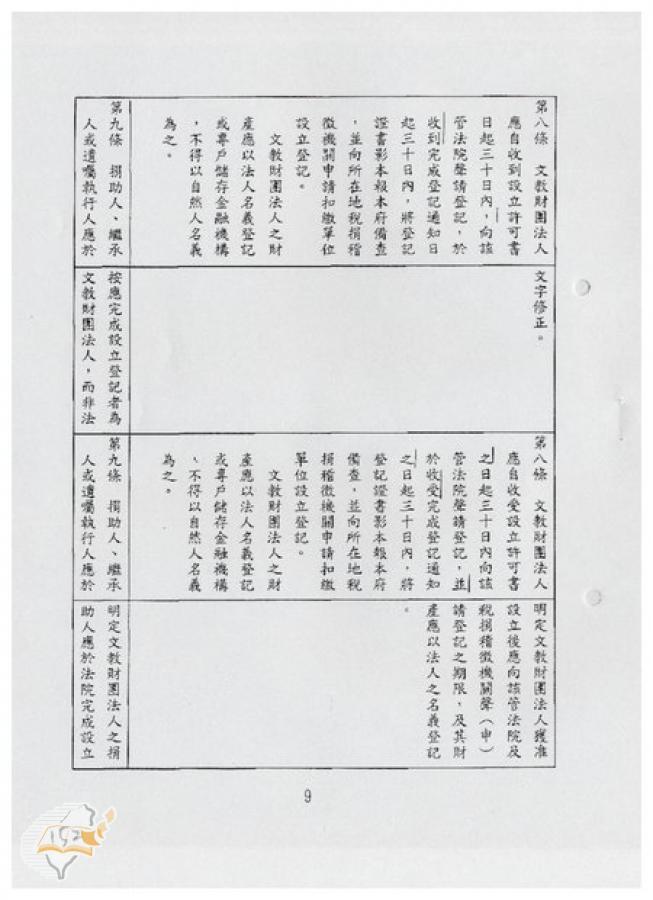 第八條　文教財團法人
應自收到設立許可書
日起三十日內，向該
管法院聲請登記，於
收到完成登記通知日
起三十日內，將登記
證書影本報本府備查
，並向所在地稅捐稽
徵機關申請扣繳單位
設立登記。
文教財團法人之財
產應以法人名義登記
或專戶儲存金融機構
，不得以自然人名義
為之。
第九條　捐助人、繼承
人或遺囑執行人應於
文字修正。
按應完成設立登記者為
文教財團法人，而非法
第八條　文教財團法人
應自收受設立許可書
之日起三十日內向該
管法院聲請登記，並
於收受完成登記通知
之日起三十日內，將
登記證書影本報本府
備查，並向所在地稅
捐稽徵機關申請扣繳
單位設立登記。
文教財團法人之財
產應以法人名義登記
或專戶儲存金融機構
、不得以自然人名義
為之。
第九條　捐助人、繼承
人或遺囑執行人應於
明定文教財團法人獲准
設立後應向該管法院及
稅捐稽徵機關聲（申）
請登記之期限，及其財
產應以法人之名義登記
。
明定文教財團法人之捐
助人應於法院完成設立
9
152